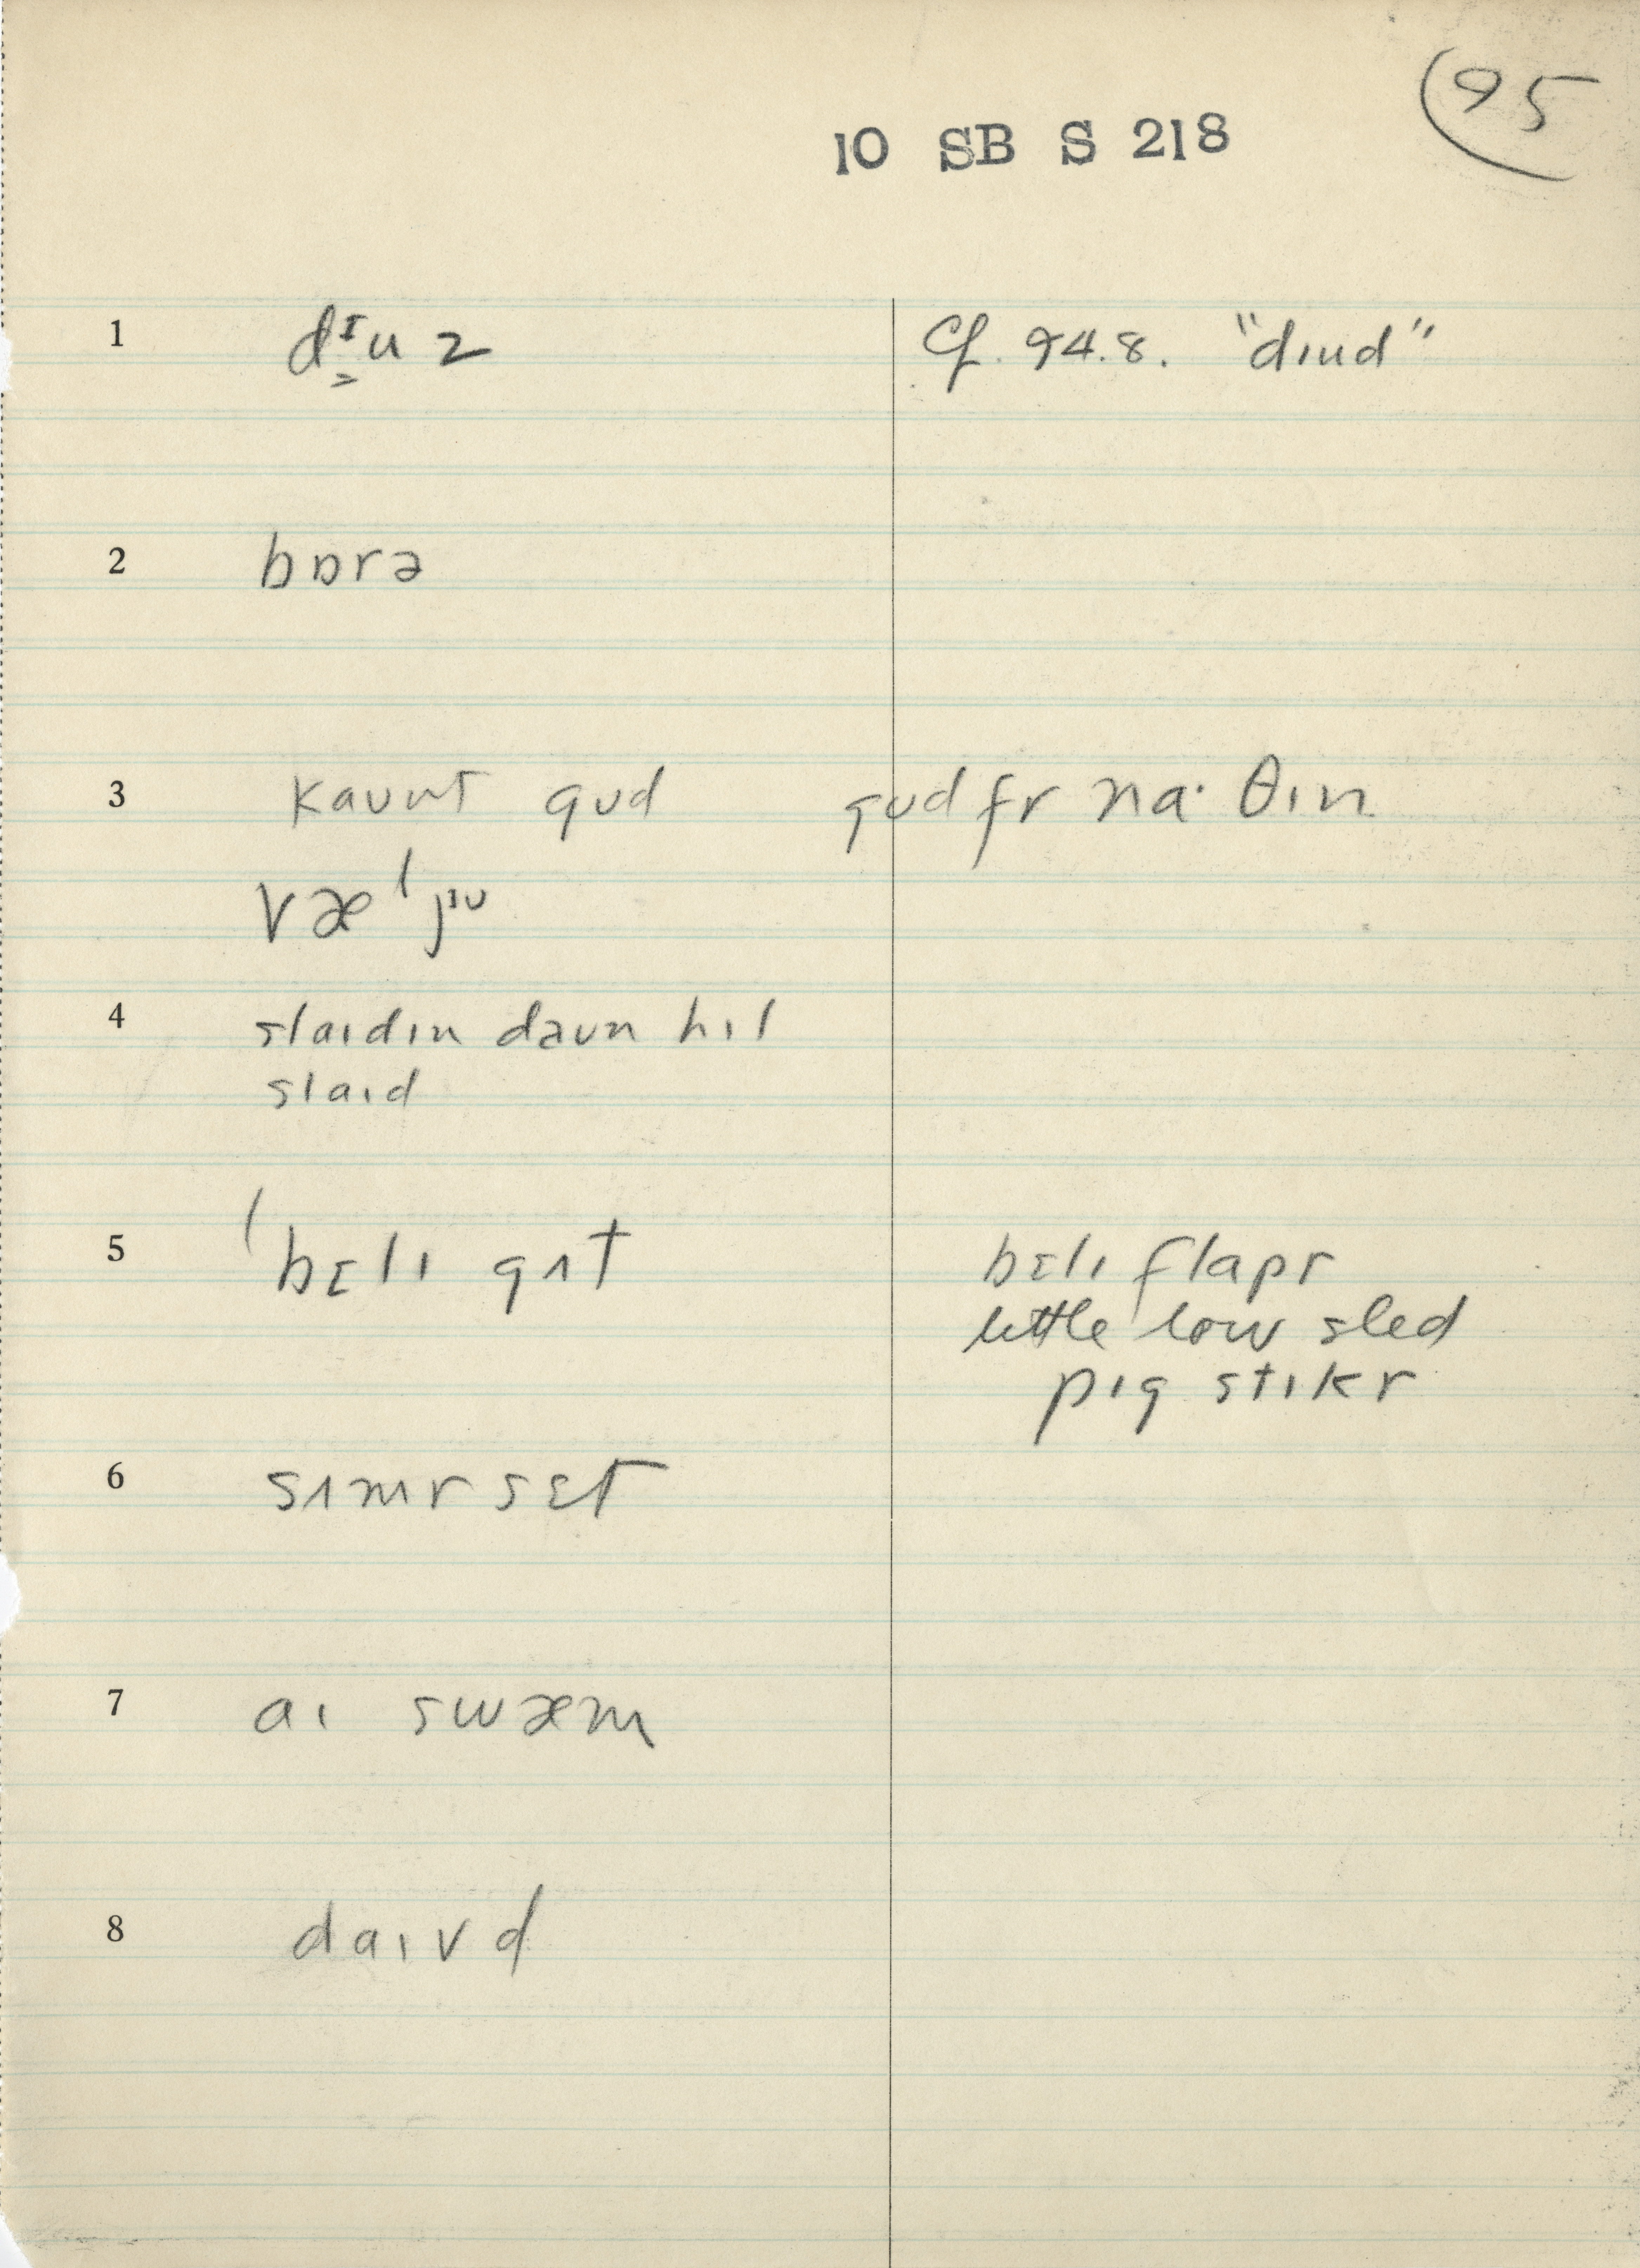 95
10 SB S 218
1 dᶦu z Cf. 94.8. "dɪud"
2 bɒrə
3 kaʊnt gʊd gʊd fr na· θɪn
væˈ jᶦᶸ
4 slaɪdɪn daʊn hɪl
slaɪd
5 ˈbɛlɪ gʌt bɛlɪ flapr
little low sled
pɪg stɪkr
6 sʌmr sɛt
7 aɪ swæm
8 daɪvd